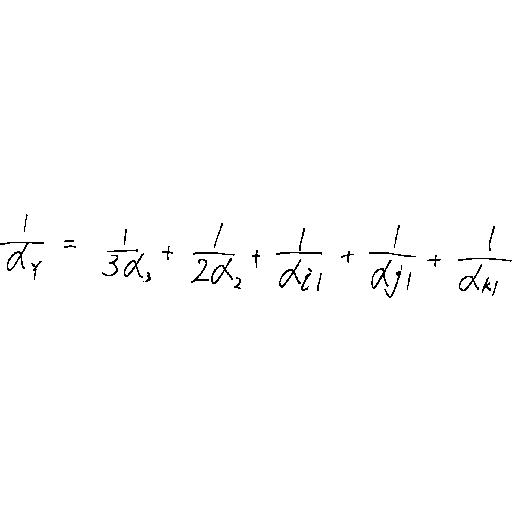 \frac{1}{\alpha_{Y}} = \frac{1}{3\alpha_{3}} + \frac{1}{2\alpha_{2}} + \frac{1}{\alpha_{i1}} + \frac{1}{\alpha_{j1}} + \frac{1}{\alpha_{k1}}